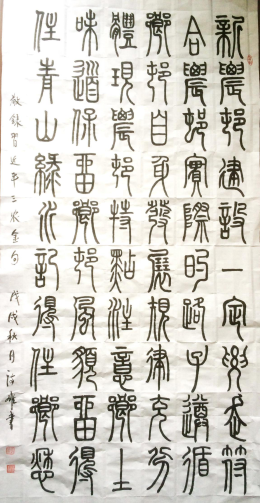 新農邨建設一定要走符
合農邨實際的路子遵循
鄉邨自身發展規律充分
體現農邨特點注意鄉土
味道保留鄉邨風貌留得
住青山綠水記得住鄉愁
敬錄習近平三农金句 戊戌秋月 書